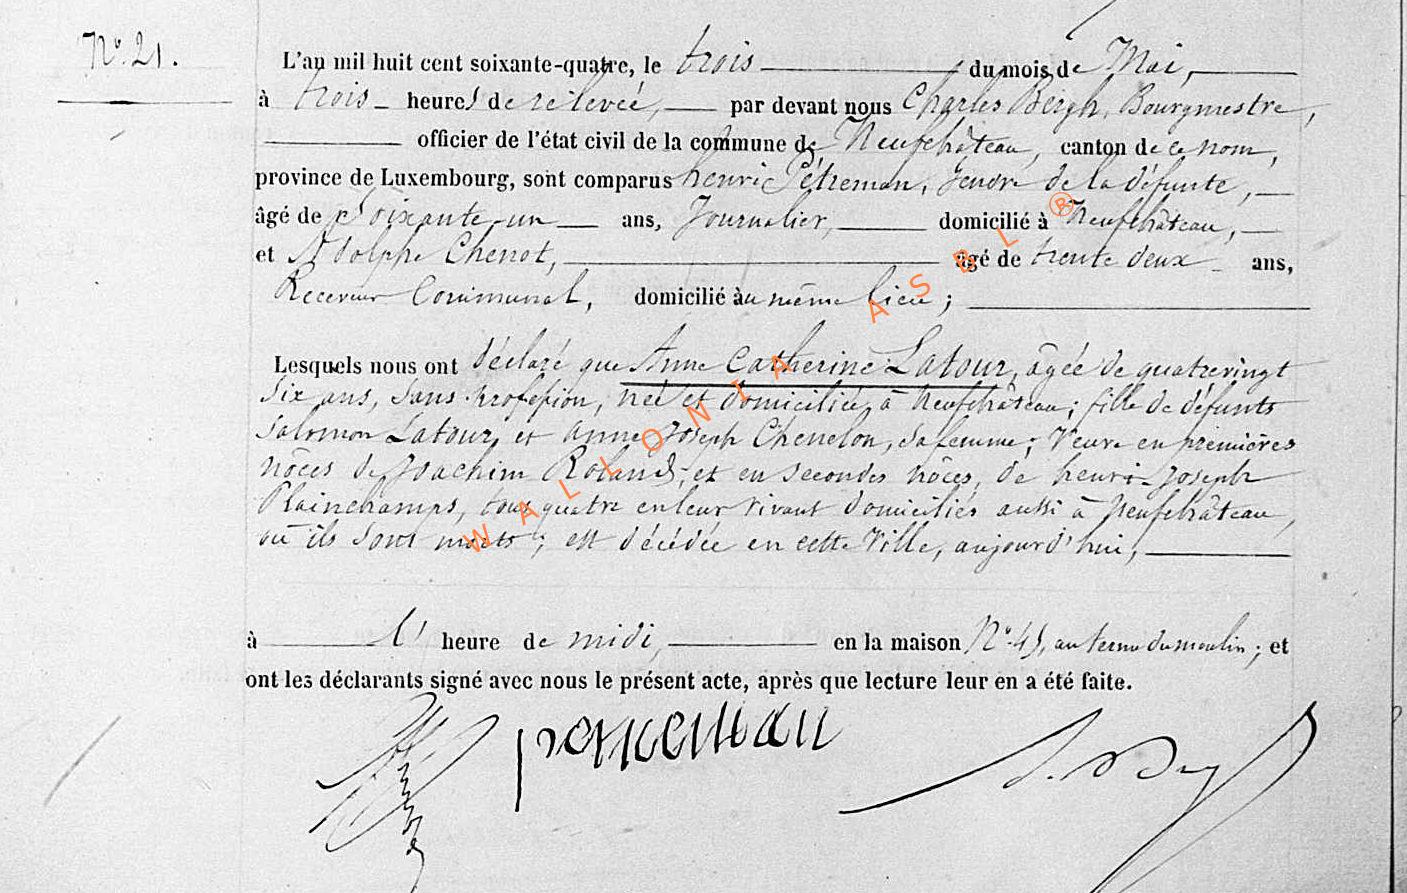 N° 21.
L'an mil huit cent soixante-quatre, le trois du mois de Mai,
à trois heures de relevée, par devant nous Charles Bergh, Bourgmestre,
officier de l'état civil de la commune de Neufchâteau, canton de ce nom,
province de Luxembourg, sont comparus henri Pétreman, Gendre de la défunte,
âgé de Soixante-un ans, Journalier, domicilié à Neufchâteau,
et Adolphe Chenot, âgé de trente deux ans,
Receveur Communal, domicilié au même lieu;
Lesquels nous ont déclaré que Anne Catherine Latour, âgée de quatrevingt
Six ans, Sans profession, née et domiciliée à Neufchâteau; fille de défunts
Salomon Latour, et Anne Joseph Chenelon, sa femme; Veuve en premières
nôces de Joachim Roland, et en secondes nôces, de henri-Joseph
Plainchamps, tous quatre en leur vivant domiciliés aussi à Neufchâteau,
où ils sont morts; est décédée en cette Ville, aujourd'hui,
à l' heure de midi, en la maison N° 45, au terme du moulin; et
ont les déclarants signé avec nous le présent acte, après que lecture leur en a été faite.
petreman
WALLONIA ASBL ®